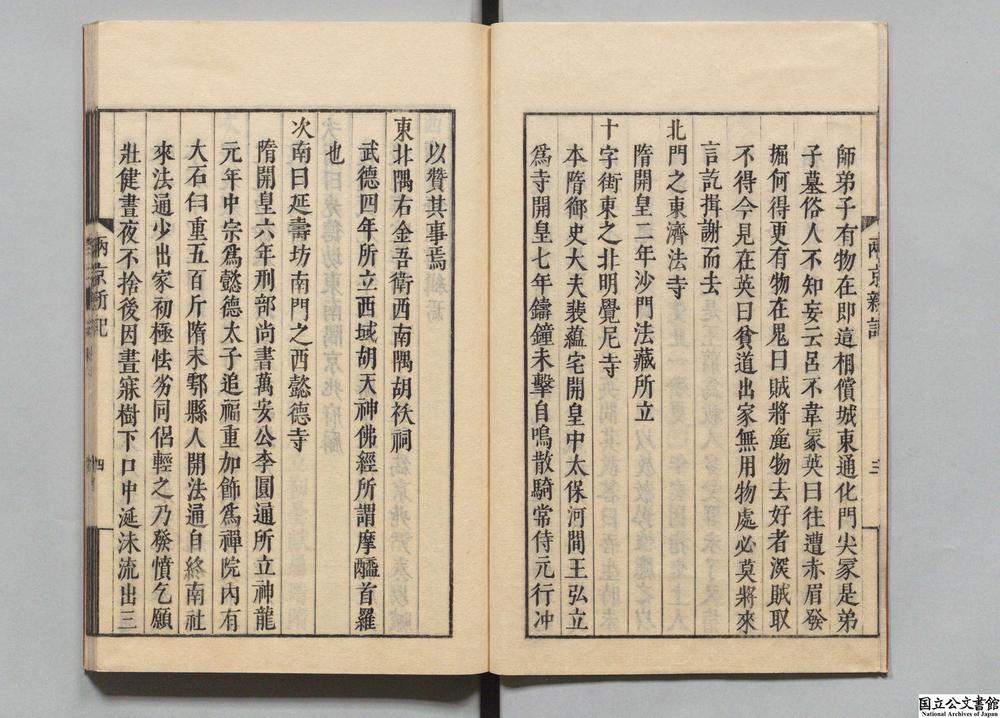 師弟子有物在即遣相償城東通化門尖冢是弟
子墓俗人不知妄云呂不韋冢英曰往遭赤眉發
掘何得更有物在鬼曰賊將麁物去好者深賊取
不得今見在英曰貧道出家無用物處必莫將來
言訖揖謝而去
北門之東濟法寺
隋開皇二年沙門法藏所立
十字街東之北明覺尼寺
本隋御史大夫裴蘊宅開皇中太保河間王弘立
爲寺開皇七年鑄鐘未擊自鳴散騎常侍元行冲
兩京新記
三
以贊其事焉
東北隅右金吾衛西南隅胡祅祠
武德四年所立西域胡天神佛經所謂摩醯首羅
也
次南曰延壽坊南門之西懿德寺
隋開皇六年刑部尚書萬安公李圓通所立神龍
元年中宗爲懿德太子追福重加飾爲禪院內有
大石臼重五百斤隋末鄠縣人開法通自終南社
來法通少出家初極怯劣同侶輕之乃發憤乞願
壯健晝夜不捨後因晝寐樹下口中涎沫流出三
兩京新記
四
国立公文書館
National Archives of Japan